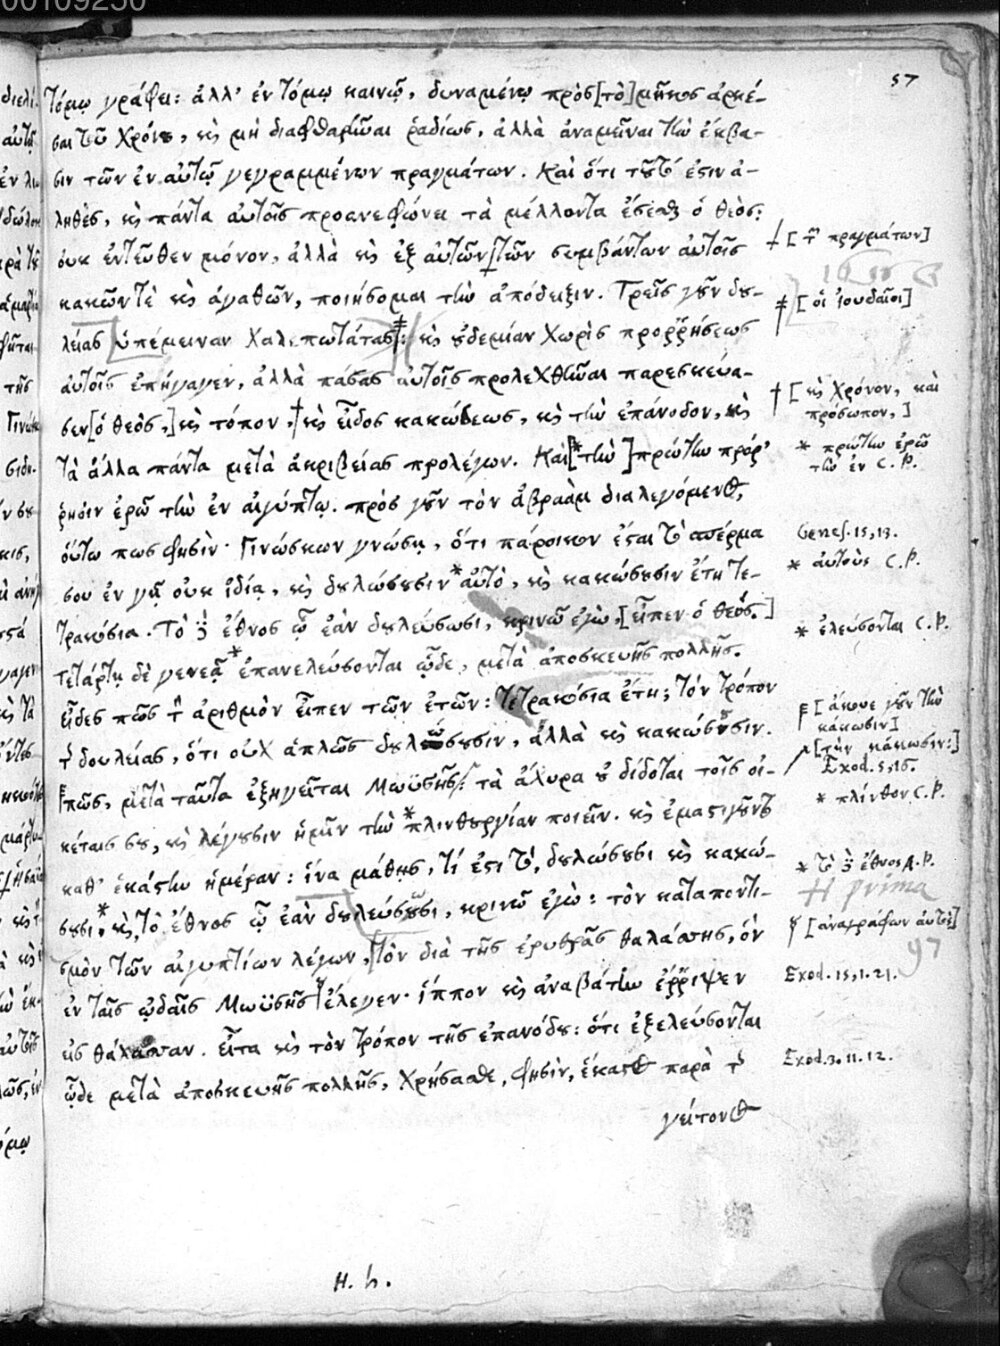 00109250
57
τόμῳ γράφει: ἀλλ' ἐν τόμῳ καινῷ, δυναμένῳ πρὸς [τὸ] μῆκος ἀρκέ-
σαι τοῦ χρόνου, καὶ μὴ διαφθαρῆναι ῥαδίως, ἀλλὰ ἀναμεῖναι τὴν ἔκβα-
σιν τῶν ἐν αὐτῷ γεγραμμένων πραγμάτων. Καὶ ὅτι τοῦτό ἐστιν ἀ-
ληθὲς, καὶ πάντα αὐτοῖς προανεφώνει τὰ μέλλοντα ἔσεσθαι ὁ θεὸς:
οὐκ ἐντεῦθεν μόνον, ἀλλὰ καὶ ἐξ αὐτῶν τῶν συμβάντων αὐτοῖς
[τῶν πραγμάτων]
κακῶν τὲ καὶ ἀγαθῶν, ποιήσομαι τὴν ἀπόδειξιν. Τρεῖς γοῦν δου-
[οἱ ἰουδαῖοι]
λείας ὑπέμειναν χαλεπωτάτας: καὶ οὐδεμίαν χωρὶς προῤῥήσεως
αὐτοῖς ἐπήγαγεν, ἀλλὰ πάσας αὐτοῖς προλεχθῆναι παρεσκεύα-
[καὶ χρόνον, καὶ
πρόσωπον,]
σεν [ὁ θεὸς,] καὶ τόπον, † καὶ εἶδος κακώσεως, καὶ τὴν ἐπάνοδον, καὶ
* πρώτην ἐρῶ
τὴν ἐν C.P.
τὰ ἄλλα πάντα μετὰ ἀκριβείας προλέγων. Καὶ [* τὴν] πρώτην πρόῤ-
ῥησιν ἐρῶ τὴν ἐν αἰγύπτῳ. πρὸς γοῦν τὸν ἀβραὰμ διαλεγόμενος,
Genes. 15, 13.
οὕτω πως φησὶν· Γινώσκων γνώσῃ, ὅτι πάροικον ἔσται τὸ σπέρμα
* αὐτοὺς C.P.
σου ἐν γῇ οὐκ ἰδίᾳ, καὶ δουλώσουσιν * αὐτὸ, καὶ κακώσουσιν ἔτη τε-
τρακόσια. Τὸ δὲ ἔθνος ᾧ ἐὰν δουλεύσωσι, κρινῶ ἐγὼ, [εἶπεν ὁ θεός.]
* ἐλεύσονται C.P.
τετάρτῃ δὲ γενεᾷ * ἐπανελεύσονται ὧδε, μετὰ ἀποσκευῆς πολλῆς.
εἶδες πῶς τὸν ἀριθμὸν εἶπεν τῶν ἐτῶν: τετρακόσια ἔτη; τὸν τρόπον
[ἄκουε γοῦν τὴν
κάκωσιν]
τῆς δουλείας, ὅτι οὐχ ἁπλῶς δουλώσουσιν, ἀλλὰ καὶ κακώσουσιν.
[τὴν κάκωσιν:]
Exod. 5, 16.
πῶς, μετὰ ταῦτα ἐξηγεῖται Μωϋσῆς: τὰ ἄχυρα οὐ δίδοται τοῖς οἰ-
* πλίνθον C.P.
κέταις σου, καὶ λέγουσιν ἡμῖν τὴν * πλινθουργίαν ποιεῖν. καὶ ἐμαστιγοῦντο
καθ' ἑκάστην ἡμέραν: ἵνα μάθῃς, τί ἐστι τὸ, δουλώσουσι καὶ κακώ-
* τὸ δὲ ἔθνος C.P.
H prima
σουσι, * καὶ, τὸ ἔθνος ᾧ ἐὰν δουλεύσωσι, κρινῶ ἐγὼ: τὸν καταποντι-
[ἀναγράφων αὐτοῖς]
97
σμὸν τῶν αἰγυπτίων λέγων, τὸν διὰ τῆς ἐρυθρᾶς θαλάσσης, ὃν
Exod. 15, 1. 21.
ἐν ταῖς ᾠδαῖς Μωϋσῆς ἔλεγεν· ἵππον καὶ ἀναβάτην ἔῤῥιψεν
εἰς θάλασσαν. εἶτα καὶ τὸν τρόπον τῆς ἐπανόδου: ὅτι ἐξελεύσονται
Exod. 3. 11. 12.
ὧδε μετὰ ἀποσκευῆς πολλῆς, χρήσασθε, φησὶν, ἕκαστος παρὰ τοῦ
γείτονος
H. h.